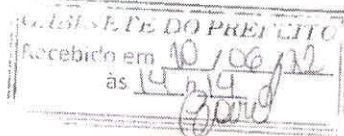 GABINETE DO PREFEITO
Recebido em 10/06/22
às 14 h 14